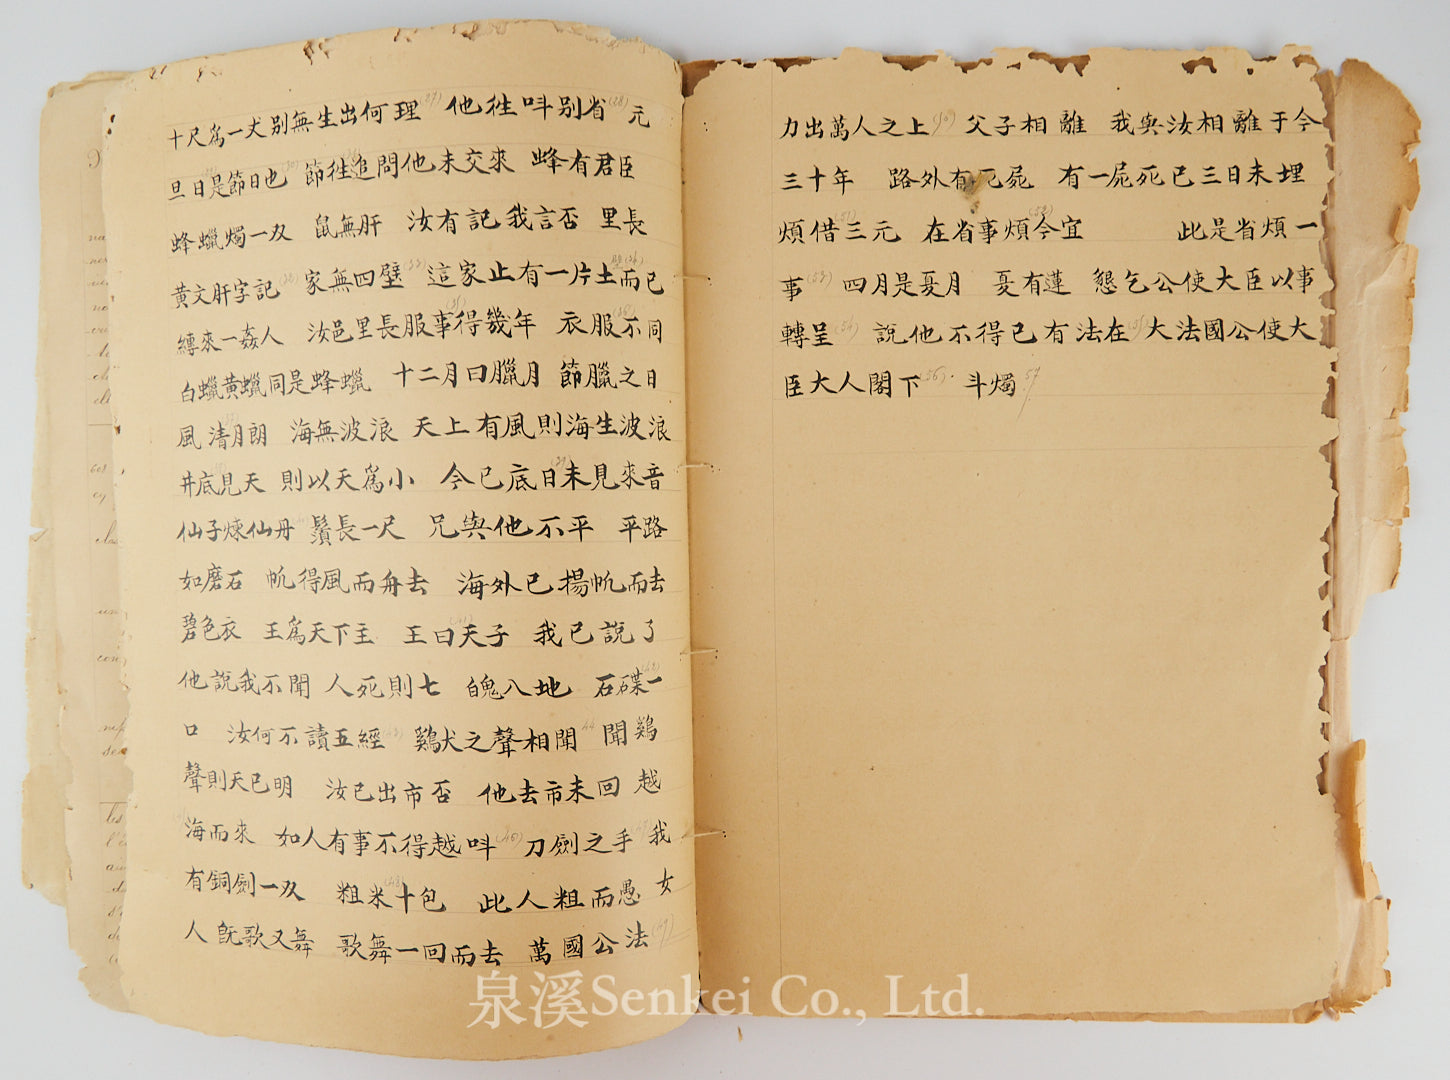 十尺爲一丈别無生出何理(27) 他徃呌别省(28) 元
旦日是節日也(30) 節徃追問他未交來 蜂有君臣
蜂蠟燭一双 鼠無肝 汝有記我言否 里長
黄文肝字記 家無四壁 這家止有一片土而已
縛來一姦人 汝邑里長服事得幾年 衣服不同
白蠟黄蠟同是蜂蠟 十二月曰臘月 節臘之日
風清月朗 海無波浪 天上有風則海生波浪
井底見天 則以天爲小 今已底日未見來音
仙子煉仙丹 鬚長一尺 兄與他不平 平路
如磨石 帆得風而舟去 海外已揚帆而去
碧色衣 王爲天下主 王曰天子 我已說了
他說我不聞 人死則七 魄八地 石碟一
口 汝何不讀五經 鷄犬之聲相聞44 聞鷄
聲則天已明 汝已出市否 他去市未回 越
海而來 如人有事不得越呌(46) 刀劍之手(47) 我
有銅劍一双 粗米十包 此人粗而愚 女
人旣歌又舞 歌舞一回而去 萬國公法(49)
力出萬人之上(50) 父子相離 我與汝相離于今
三十年 路外有死屍 有一屍死已三日未埋
煩借三元(51) 在省事煩今宜(52) 此是省煩一
事(53) 四月是夏月 夏有蓮 懇乞公使大臣以事
轉呈(54) 說他不得已有法在(55) 大法國公使大
臣大人閣下(56) 斗燭57
泉溪Senkei Co., Ltd.